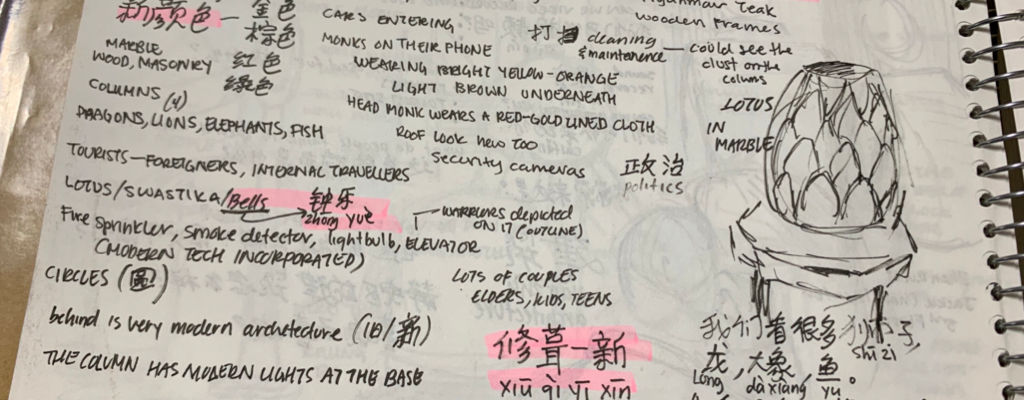 新颜色— 金色
棕色
MARBLE
WOOD, MASONRY 红色
COLUMNS (4) 绿色
DRAGONS, LIONS, ELEPHANTS, FISH
TOURISTS—FOREIGNERS, INTERNAL TRAVELLERS
LOTUS/SWASTIKA/Bells 钟乐
zhōng yuè
Fire sprinkler, smoke detector, lightbulb, ELEVATOR
(MODERN TECH INCORPORATED)
CIRCLES (圆)
behind is very modern architecture (旧/新)
THE COLUMN HAS MODERN LIGHTS AT THE BASE
CARS ENTERING
MONKS ON THEIR PHONE
WEARING BRIGHT YELLOW-ORANGE
LIGHT BROWN UNDERNEATH
HEAD MONK WEARS A RED-GOLD LINED CLOTH
ROOF look new too
security cameras
政治
politics
WARRIORS depicted
ON IT (OUTLINE)
LOTS OF COUPLES
ELDERS, KIDS, TEENS
修葺一新
xiū qì yī xīn
Teak
wooden frames
打扫 cleaning
& maintenence — could see the
dust on the
colums
LOTUS
IN
MARBLE
我们看很多狮子,
shī zi
龙,大象,鱼。
Lóng dà xiàng yú